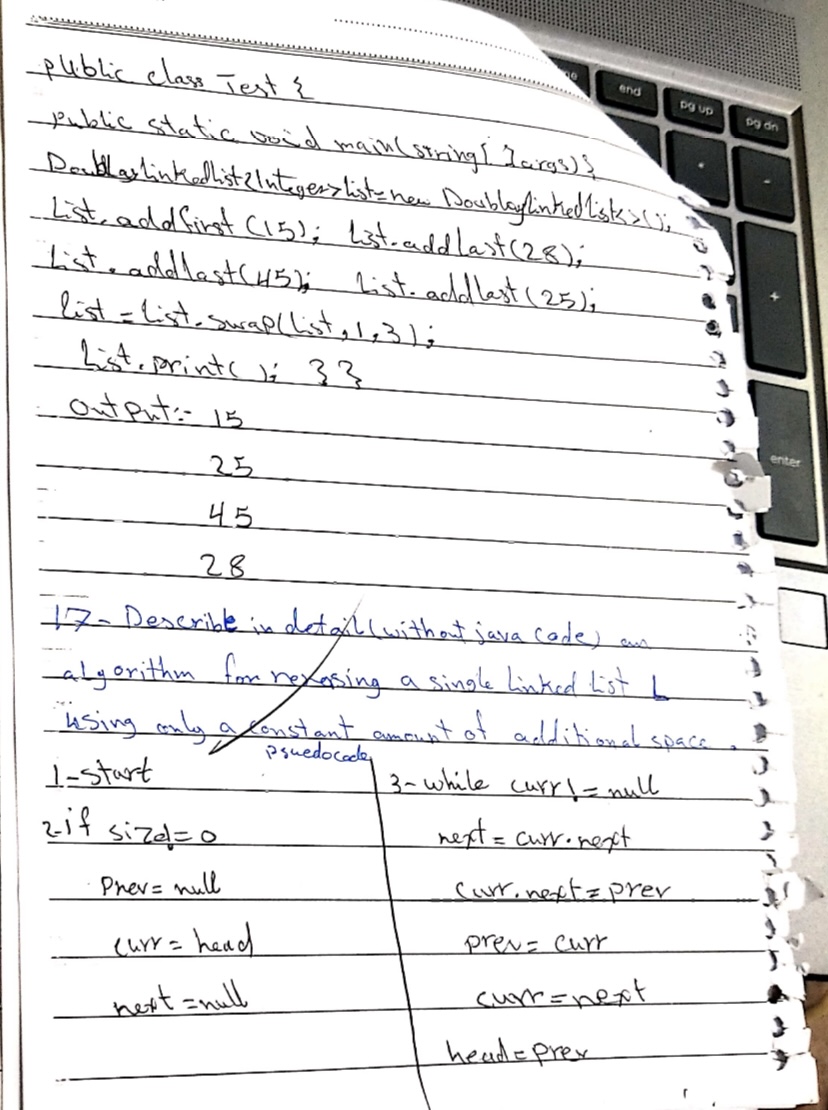 public class Test {
public static void main(string[ ]args){
DoublayLinkedlist<Integer>list=new DoublayLinkedlist<>();
List.addfirst (15); list.addlast(28);
List.addlast(45); List.addlast(25);
list=List.swap(List,1,3);
List.print( ); }}
output:- 15
25
45
28
17- Describe in detail (without java code) an
algorithm for reversing a single Linked List L
using only a constant amount of additional space.
psuedocode
1-start
2-if size!=0
Prev=null
curr=head
next=null
3-while curr!=null
next=curr.next
curr.next=prev
prev=curr
curr=next
head=prev
end
pg up
pg dn
+
enter